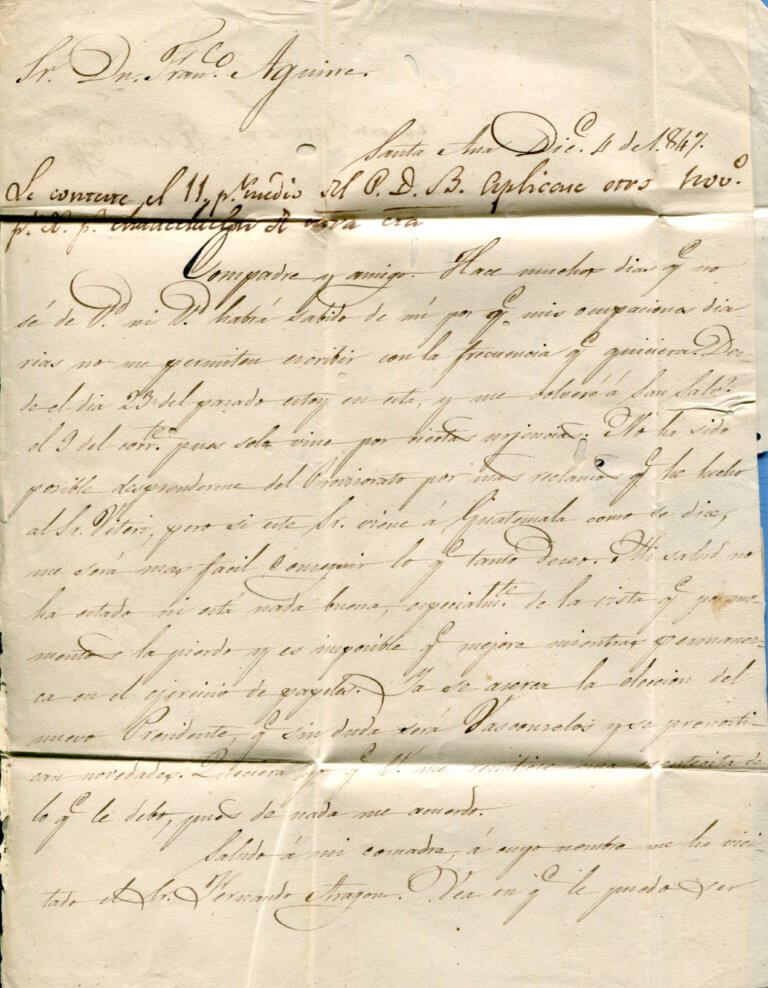 Sr. Dn. Franco. Aguirre.
Santa Ana Dice. 4 de 1847.
Le conteste el 11, pr. medio del P. D. B. Aplicase otro Novo.
p. de esta
Compadre y amigo. Hace muchos dias qe. no
sé de V. ni V. habrá sabido de mí por qe. mis ocupaciones dia
rias no me permiten escribir con la frecuencia qe. quisiera. Des-
de el dia 23 del pasado estoy en esta, y me volveré á San Salvr.
el 9 del corrte. pues solo vine por ciertas urjencias. No ha sido
posible desprenderme del Provisorato por mas reclamos qe. he hecho
al Sr. Viteri, pero si este Sr. viene á Guatemala como se dice,
me será mas facil conseguir lo qe. tanto deseo. Mi salud no
ha estado ni está nada buena, especialmte. de la vista qe. por mo-
mentos la pierdo y es imposible qe. mejore mientras permanez-
ca en el ejercicio de papeles. Ya se acerca la eleccion del
nuevo Presidente, qe. sin duda será Vasconzelos y se pronosti-
can novedades. Quisiera yo qe. V. me remitiese una cuentecita de
lo qe. le debo, pues de nada me acuerdo.
Saludo á mi comadre, á cuyo nombre me ha visi-
tado el Sr. Fernando Aragon. Vea en qe. le puedo ser